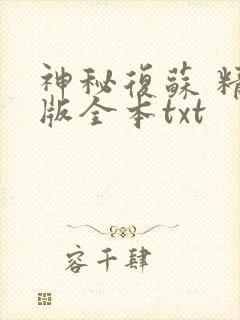 神秘復蘇 精
版全本txt
容千肆